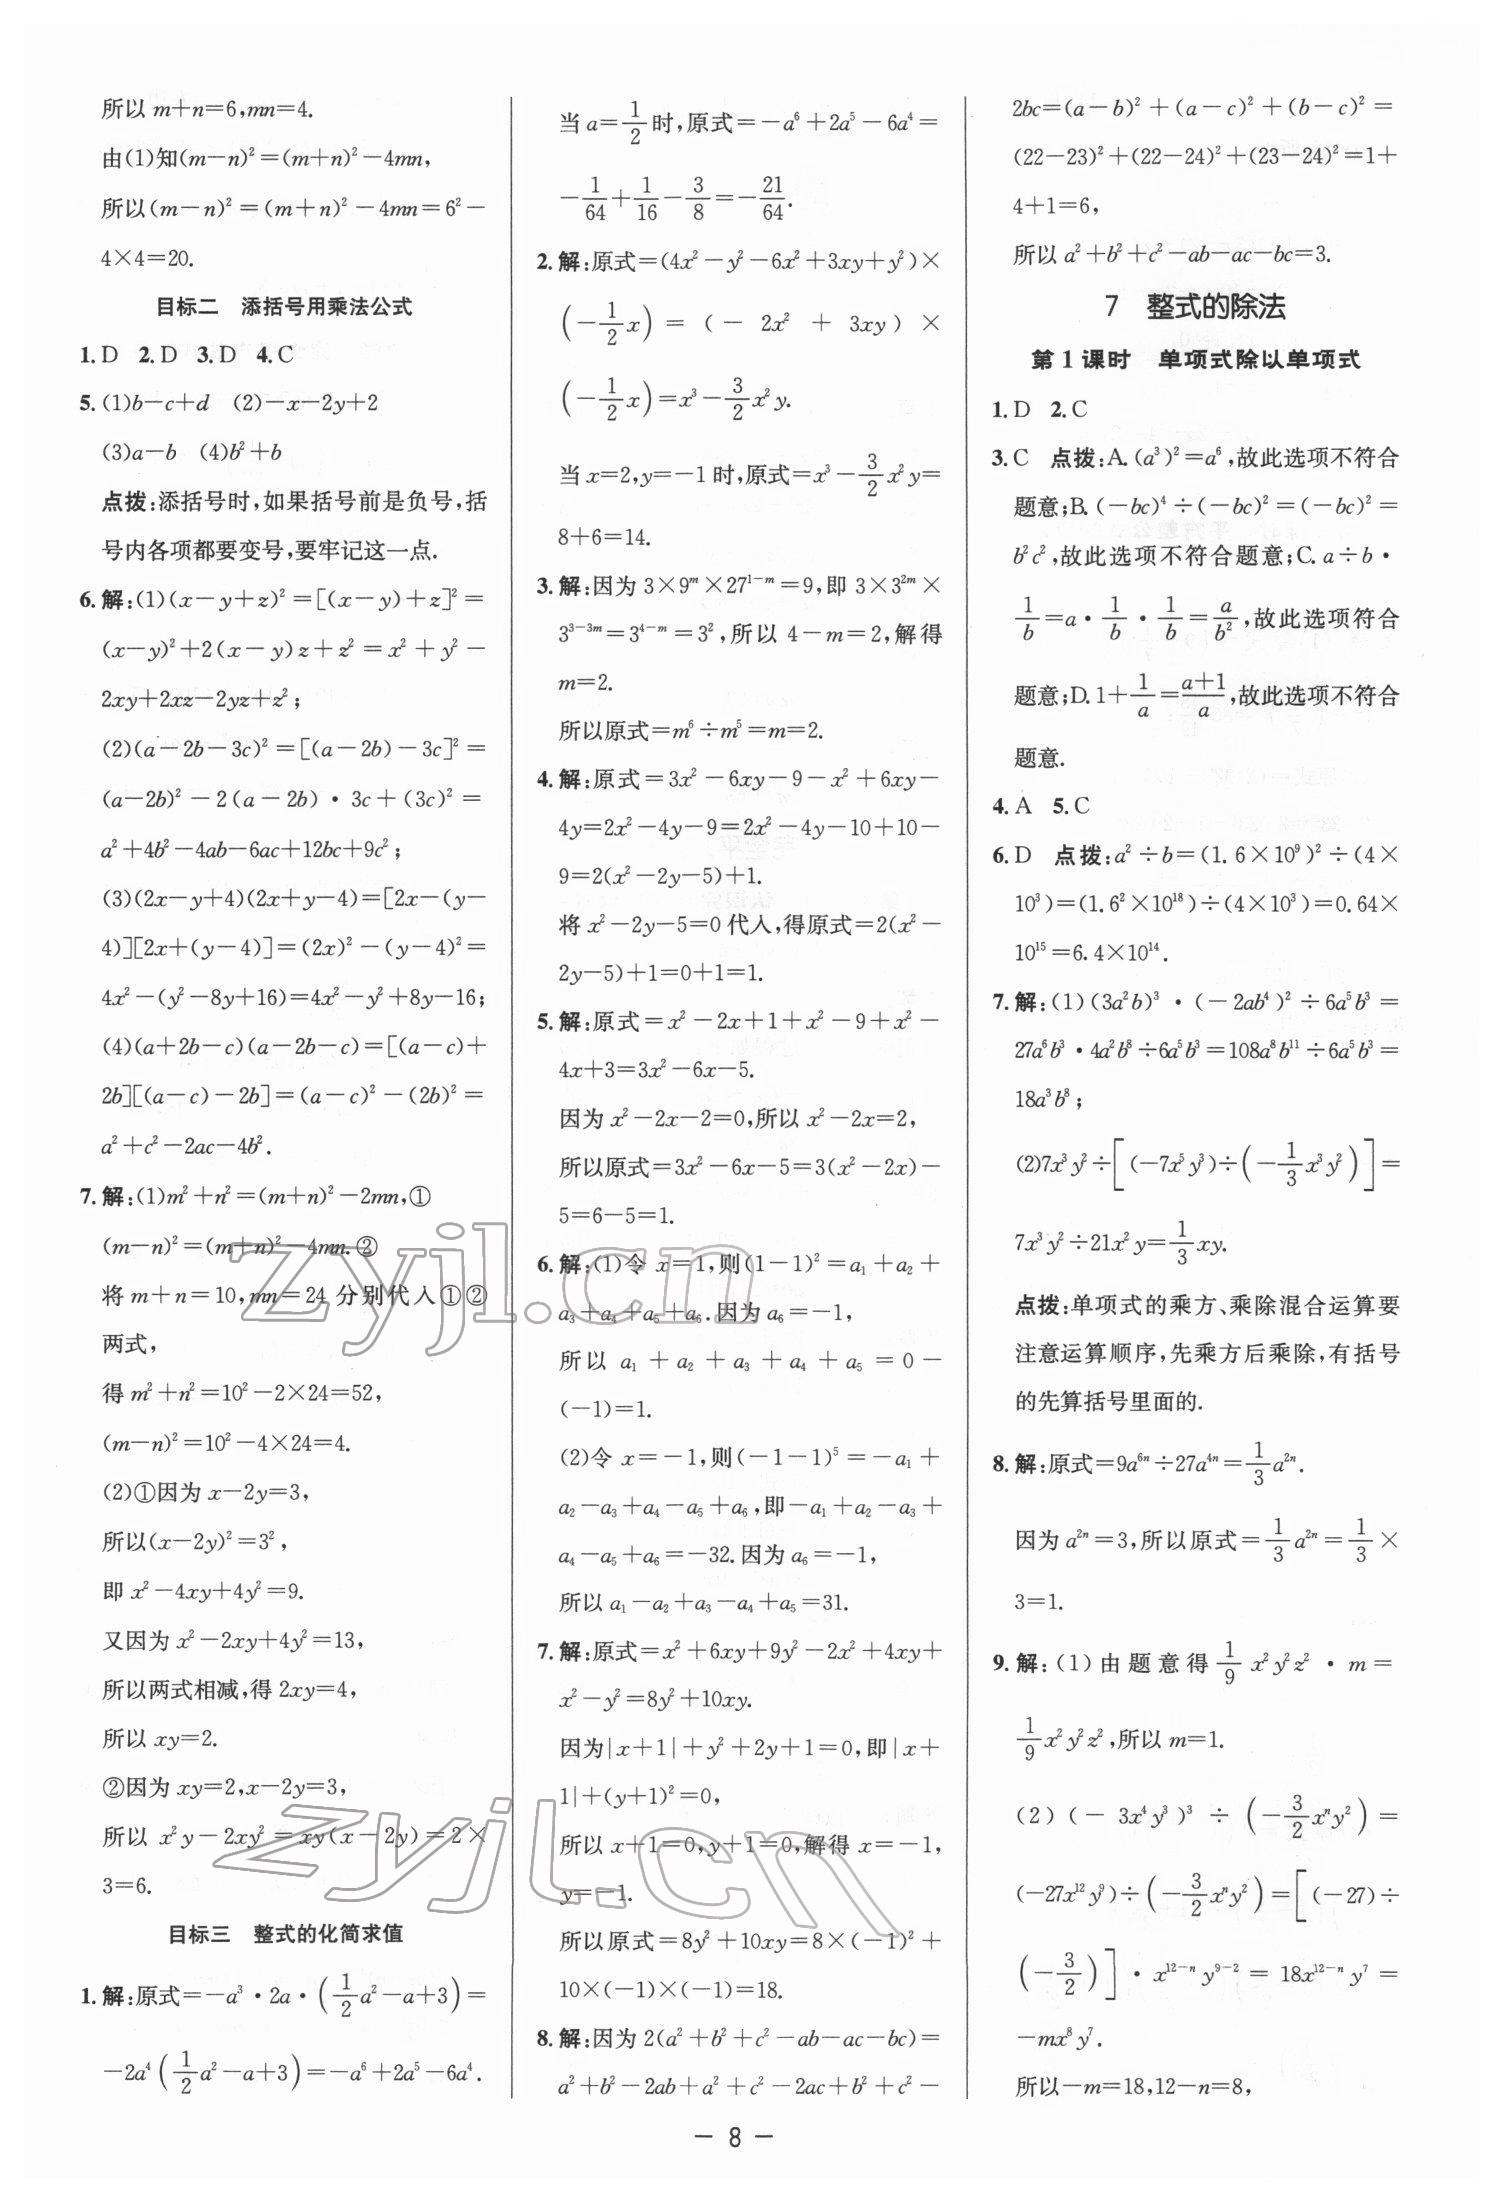 所以 m+n=6,mn=4.
由(1)知(m-n)²=(m+n)²-4mn,
所以(m-n)²=(m+n)²-4mn=6²-
4×4=20.
目标二 添括号用乘法公式
1. D 2. D 3. D 4. C
5. (1)b-c+d (2)-x-2y+2
(3)a-b (4)b²+b
点拨:添括号时,如果括号前是负号,括
号内各项都要变号,要牢记这一点.
6. 解:(1)(x-y+z)²=[(x-y)+z]²=
(x-y)²+2(x-y)z+z²=x²+y²-
2xy+2xz-2yz+z²;
(2)(a-2b-3c)²=[(a-2b)-3c]²=
(a-2b)²-2(a-2b)·3c+(3c)²=
a²+4b²-4ab-6ac+12bc+9c²;
(3)(2x-y+4)(2x+y-4)=[2x-(y-
4)][2x+(y-4)]=(2x)²-(y-4)²=
4x²-(y²-8y+16)=4x²-y²+8y-16;
(4)(a+2b-c)(a-2b-c)=[(a-c)+
2b][(a-c)-2b]=(a-c)²-(2b)²=
a²+c²-2ac-4b².
7. 解:(1)m²+n²=(m+n)²-2mn,①
(m-n)²=(m+n)²-4mn.②
将 m+n=10,mn=24 分别代入①②
两式,
得 m²+n²=10²-2×24=52,
(m-n)²=10²-4×24=4.
(2)①因为 x-2y=3,
所以(x-2y)²=3²,
即 x²-4xy+4y²=9.
又因为 x²-2xy+4y²=13,
所以两式相减,得 2xy=4,
所以 xy=2.
②因为 xy=2,x-2y=3,
所以 x²y-2xy²=xy(x-2y)=2×
3=6.
目标三 整式的化简求值
1. 解:原式=-a³·2a·(1/2 a²-a+3)=
-2a⁴(1/2 a²-a+3)=-a⁶+2a⁵-6a⁴.
当 a=1/2 时,原式=-a⁶+2a⁵-6a⁴=
-1/64+1/16-3/8=-21/64.
2. 解:原式=(4x²-y²-6x²+3xy+y²)×
(-1/2 x)=(-2x²+3xy)×
(-1/2 x)=x³-3/2 x²y.
当 x=2,y=-1 时,原式=x³-3/2 x²y=
8+6=14.
3. 解:因为 3×9ᵐ×27¹⁻ᵐ=9,即 3×3²ᵐ×
3³⁻³ᵐ=3⁴⁻ᵐ=3²,所以 4-m=2,解得
m=2.
所以原式=m⁶÷m⁵=m=2.
4. 解:原式=3x²-6xy-9-x²+6xy-
4y=2x²-4y-9=2x²-4y-10+10-
9=2(x²-2y-5)+1.
将 x²-2y-5=0 代入,得原式=2(x²-
2y-5)+1=0+1=1.
5. 解:原式=x²-2x+1+x²-9+x²-
4x+3=3x²-6x-5.
因为 x²-2x-2=0,所以 x²-2x=2,
所以原式=3x²-6x-5=3(x²-2x)-
5=6-5=1.
6. 解:(1)令 x=1,则(1-1)²=a₁+a₂+
a₃+a₄+a₅+a₆.因为 a₆=-1,
所以 a₁+a₂+a₃+a₄+a₅=0-
(-1)=1.
(2)令 x=-1,则(-1-1)⁵=-a₁+
a₂-a₃+a₄-a₅+a₆,即-a₁+a₂-a₃+
a₄-a₅+a₆=-32.因为 a₆=-1,
所以 a₁-a₂+a₃-a₄+a₅=31.
7. 解:原式=x²+6xy+9y²-2x²+4xy+
x²-y²=8y²+10xy.
因为|x+1|+y²+2y+1=0,即|x+
1|+(y+1)²=0,
所以 x+1=0,y+1=0,解得 x=-1,
y=-1.
所以原式=8y²+10xy=8×(-1)²+
10×(-1)×(-1)=18.
8. 解:因为 2(a²+b²+c²-ab-ac-bc)=
a²+b²-2ab+a²+c²-2ac+b²+c²-
2bc=(a-b)²+(a-c)²+(b-c)²=
(22-23)²+(22-24)²+(23-24)²=1+
4+1=6,
所以 a²+b²+c²-ab-ac-bc=3.
7 整式的除法
第 1 课时 单项式除以单项式
1. D 2. C
3. C 点拨:A.(a³)²=a⁶,故此选项不符合
题意;B.(-bc)⁴÷(-bc)²=(-bc)²=
b²c²,故此选项不符合题意;C. a÷b·
1/b=a·1/b·1/b=a/b²,故此选项符合
题意;D. 1+1/a=(a+1)/a,故此选项不符合
题意.
4. A 5. C
6. D 点拨:a²÷b=(1.6×10⁹)²÷(4×
10³)=(1.6²×10¹⁸)÷(4×10³)=0.64×
10¹⁵=6.4×10¹⁴.
7. 解:(1)(3a²b)³·(-2ab⁴)²÷6a⁵b³=
27a⁶b³·4a²b⁸÷6a⁵b³=108a⁸b¹¹÷6a⁵b³=
18a³b⁸;
(2)7x³y²÷[(-7x⁵y³)÷(-1/3 x³y²)]=
7x³y²÷21x²y=1/3 xy.
点拨:单项式的乘方、乘除混合运算要
注意运算顺序,先乘方后乘除,有括号
的先算括号里面的.
8. 解:原式=9a⁶ⁿ÷27a⁴ⁿ=1/3 a²ⁿ.
因为 a²ⁿ=3,所以原式=1/3 a²ⁿ=1/3×
3=1.
9. 解:(1)由题意得 1/9 x²y²z²·m=
1/9 x²y²z²,所以 m=1.
(2)(-3x⁴y³)³÷(-3/2 xⁿy²)=
(-27x¹²y⁹)÷(-3/2 xⁿy²)=[(-27)÷
(-3/2)]·x¹²⁻ⁿy⁹⁻²=18x¹²⁻ⁿy⁷=
-mx⁸y⁷.
所以-m=18,12-n=8,
- 8 -
zyjl.cn
zyjl.cn